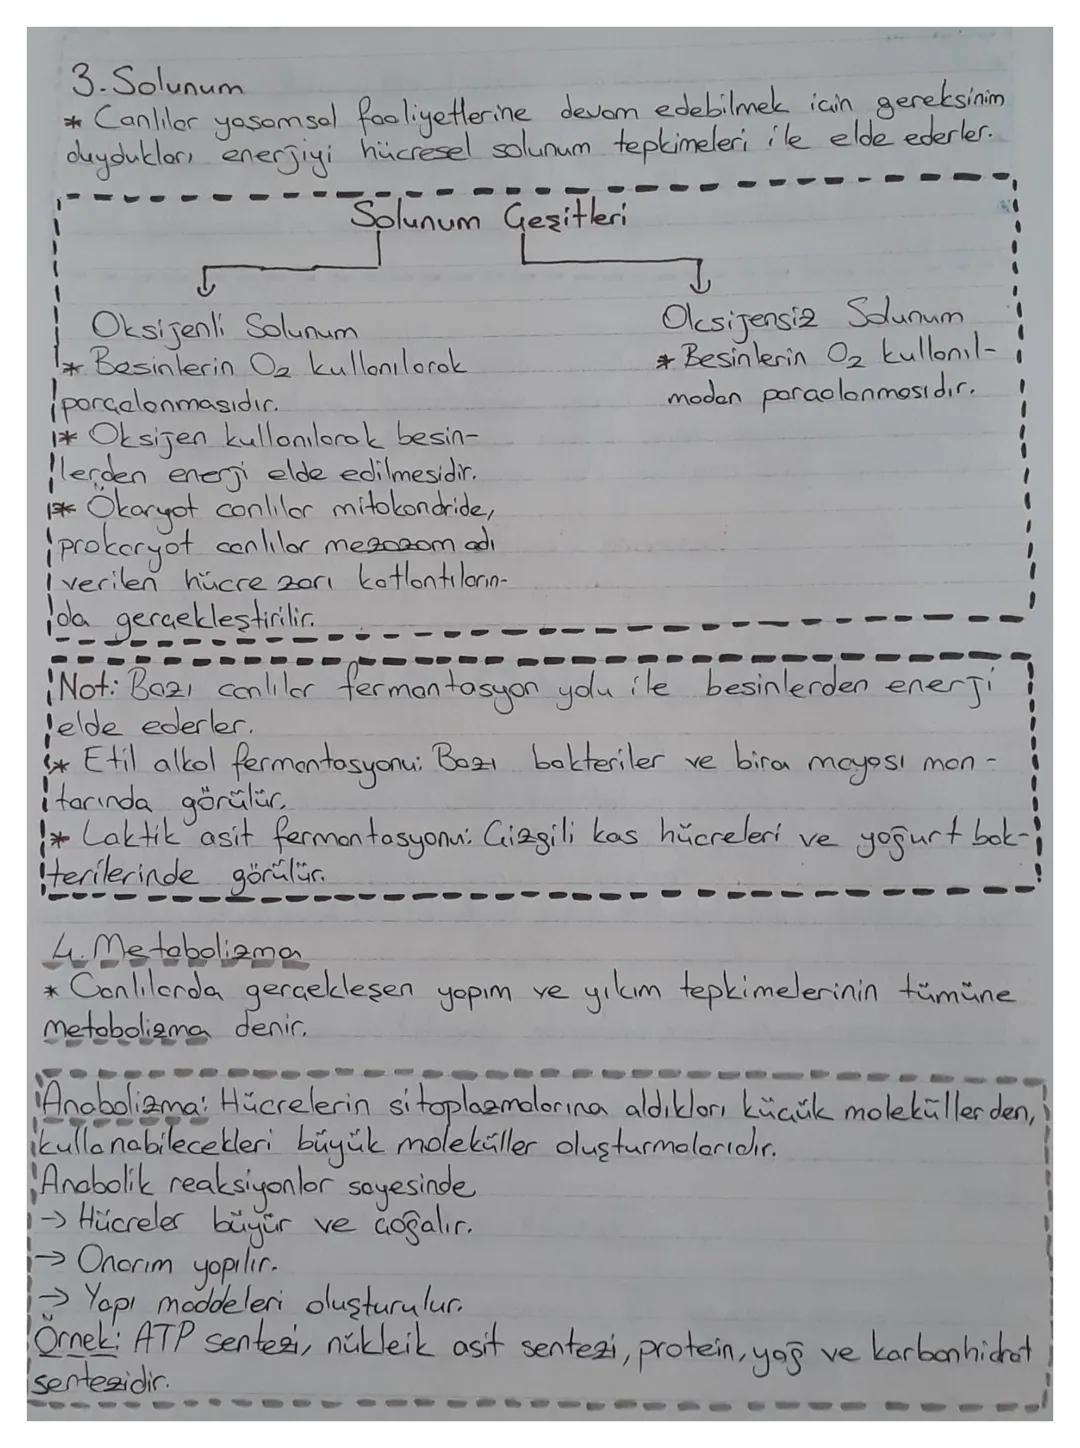 3. Solunum
* Canlılar yaşamsal faaliyetlerine devam edebilmek için gereksinim
duydukları enerjiyi hücresel solunum tepkimeleri ile elde ederler.
Solunum Çeşitleri
Oksijenli Solunum
* Besinlerin O2 kullanılarak
parçalanmasıdır.
* Oksijen kullanılarak besin-
lerden enerji elde edilmesidir.
* Ökaryot canlılar mitokondride,
prokaryot canlılar mezozom adı
verilen hücre zarı katlantıların-
da gerçekleştirilir.
Oksijensiz Solunum
* Besinlerin O2 kullanıl-
madan parçalanmasıdır.
Not: Bazı canlılar fermantasyon yolu ile besinlerden enerji
elde ederler.
* Etil alkol fermantasyonu: Bazı bakteriler ve bira mayası man-
tarında görülür.
* Laktik asit fermantasyonu: Çizgili kas hücreleri ve yoğurt bak-
terilerinde görülür.
4. Metabolizma
* Canlılarda gerçekleşen yapım ve yıkım tepkimelerinin tümüne
metabolizma denir.
Anabolizma: Hücrelerin sitoplazmalarına aldıkları küçük moleküllerden,
kullanabilecekleri büyük moleküller oluşturmalarıdır.
Anabolik reaksiyonlar sayesinde,
→ Hücreler büyür ve çoğalır.
→ Onarım yapılır.
→ Yapı maddeleri oluşturulur.
Örnek: ATP sentezi, nükleik asit sentezi, protein, yağ ve karbonhidrat
sentezidir.